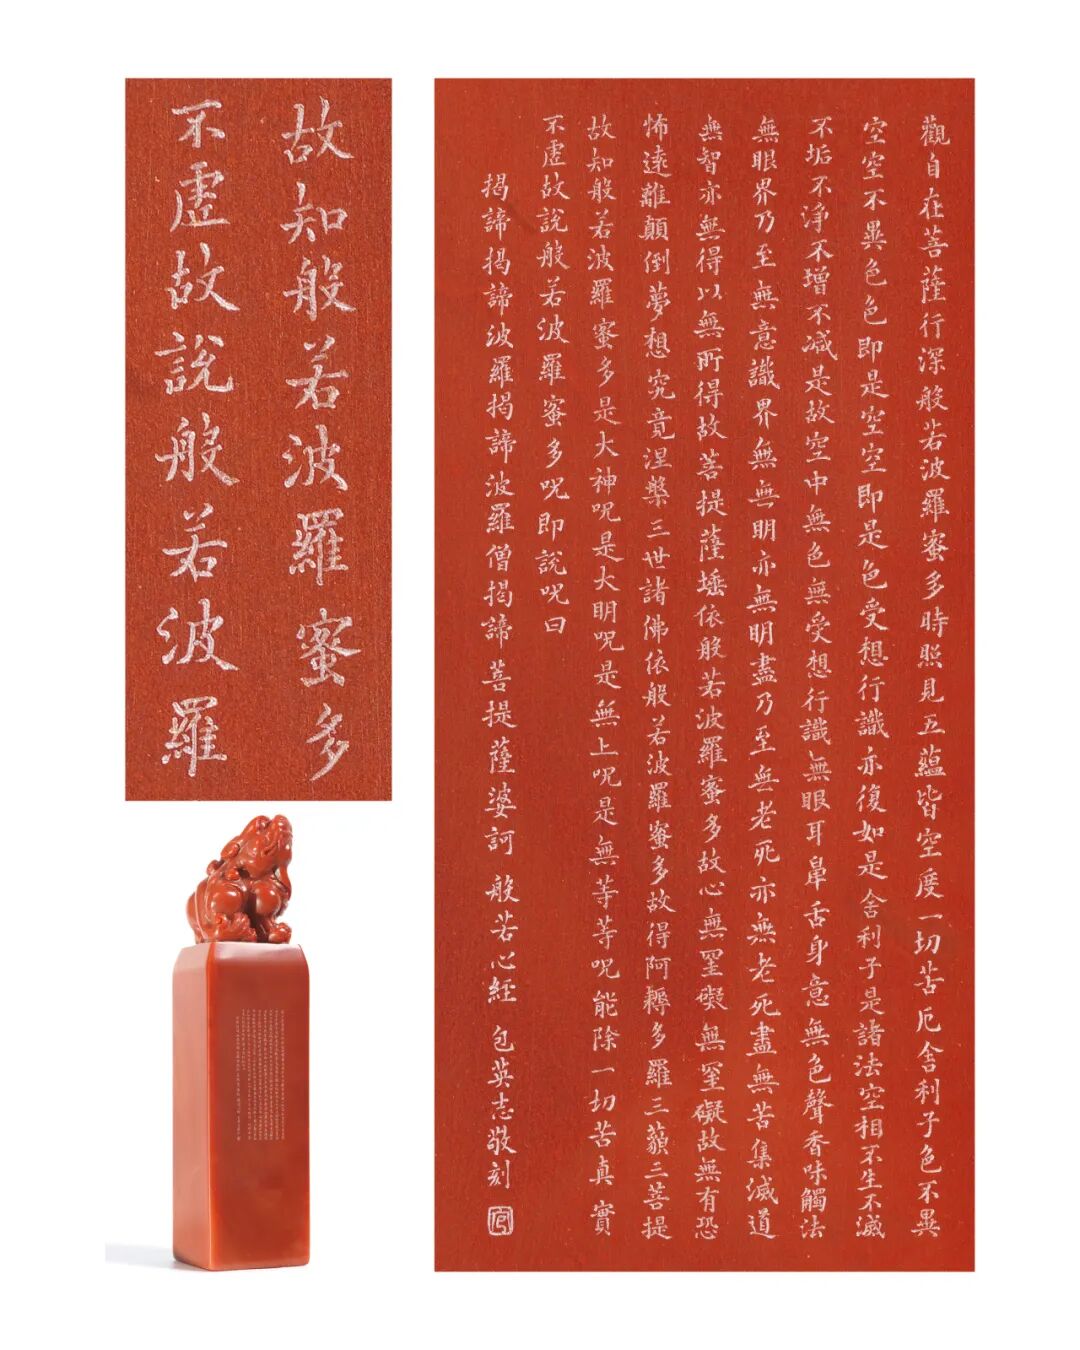 故知般若波羅蜜多
不虛故說般若波羅
觀自在菩薩行深般若波羅蜜多時照見五蘊皆空度一切苦厄舍利子色不異
空空不異色色即是空空即是色受想行識亦復如是舍利子是諸法空相不生不滅
不垢不淨不增不減是故空中無色無受想行識無眼耳鼻舌身意無色聲香味觸法
無眼界乃至無意識界無無明亦無明盡乃至無老死亦無老死盡無苦集滅道
無智亦無得以無所得故菩提薩埵依般若波羅蜜多故心無罣礙無罣礙故無有恐
怖遠離顛倒夢想究竟涅槃三世諸佛依般若波羅蜜多故得阿耨多羅三藐三菩提
故知般若波羅蜜多是大神呪是大明呪是無上呪是無等等呪能除一切苦真實
不虛故說般若波羅蜜多呪即說呪曰
揭諦揭諦波羅揭諦波羅僧揭諦菩提薩婆訶 般若心經 包英志敬刻